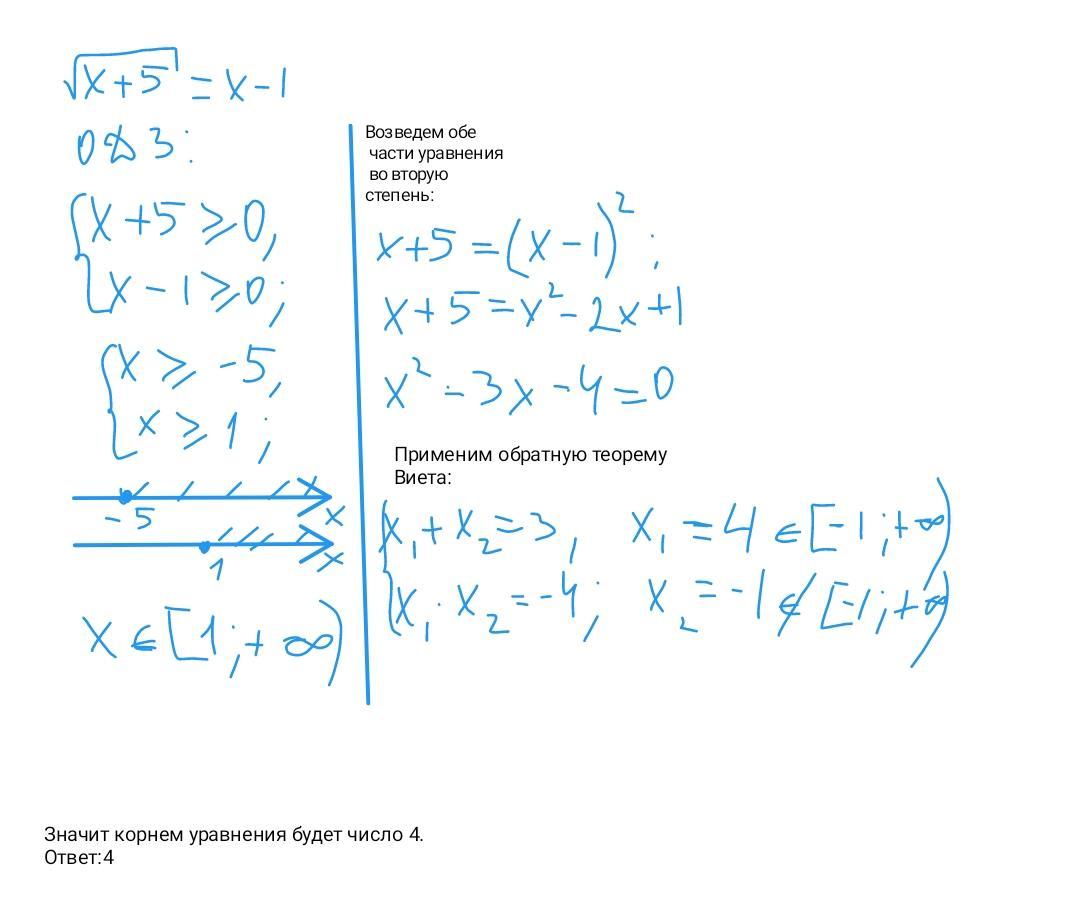 √x+5 = x-1
ОДЗ:
{x+5⩾0,
{x-1⩾0;
{x⩾-5,
{x⩾1;
-5 x
1 x
x∈[1;+∞)
Возведем обе
части уравнения
во вторую
степень:
x+5=(x-1)²;
x+5=x²-2x+1
x²-3x-4=0
Применим обратную теорему
Виета:
{x₁+x₂=3, x₁=4∈[-1;+∞)
{x₁·x₂=-4; x₂=-1∉[-1;+∞)
Значит корнем уравнения будет число 4.
Ответ:4